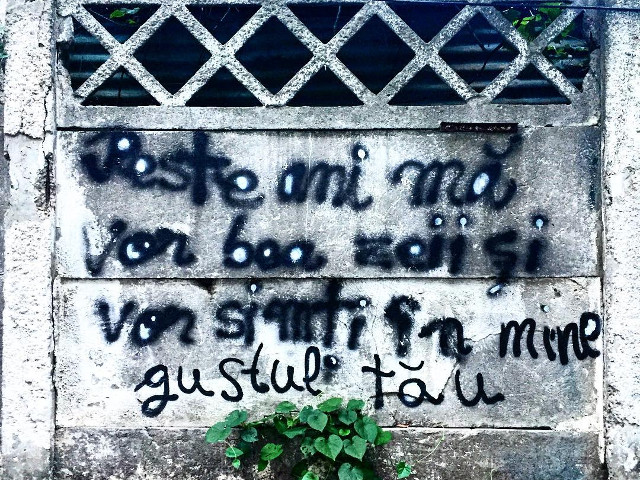 Peste ani mă
vor bea zeii și
vor simți în mine
gustul tău